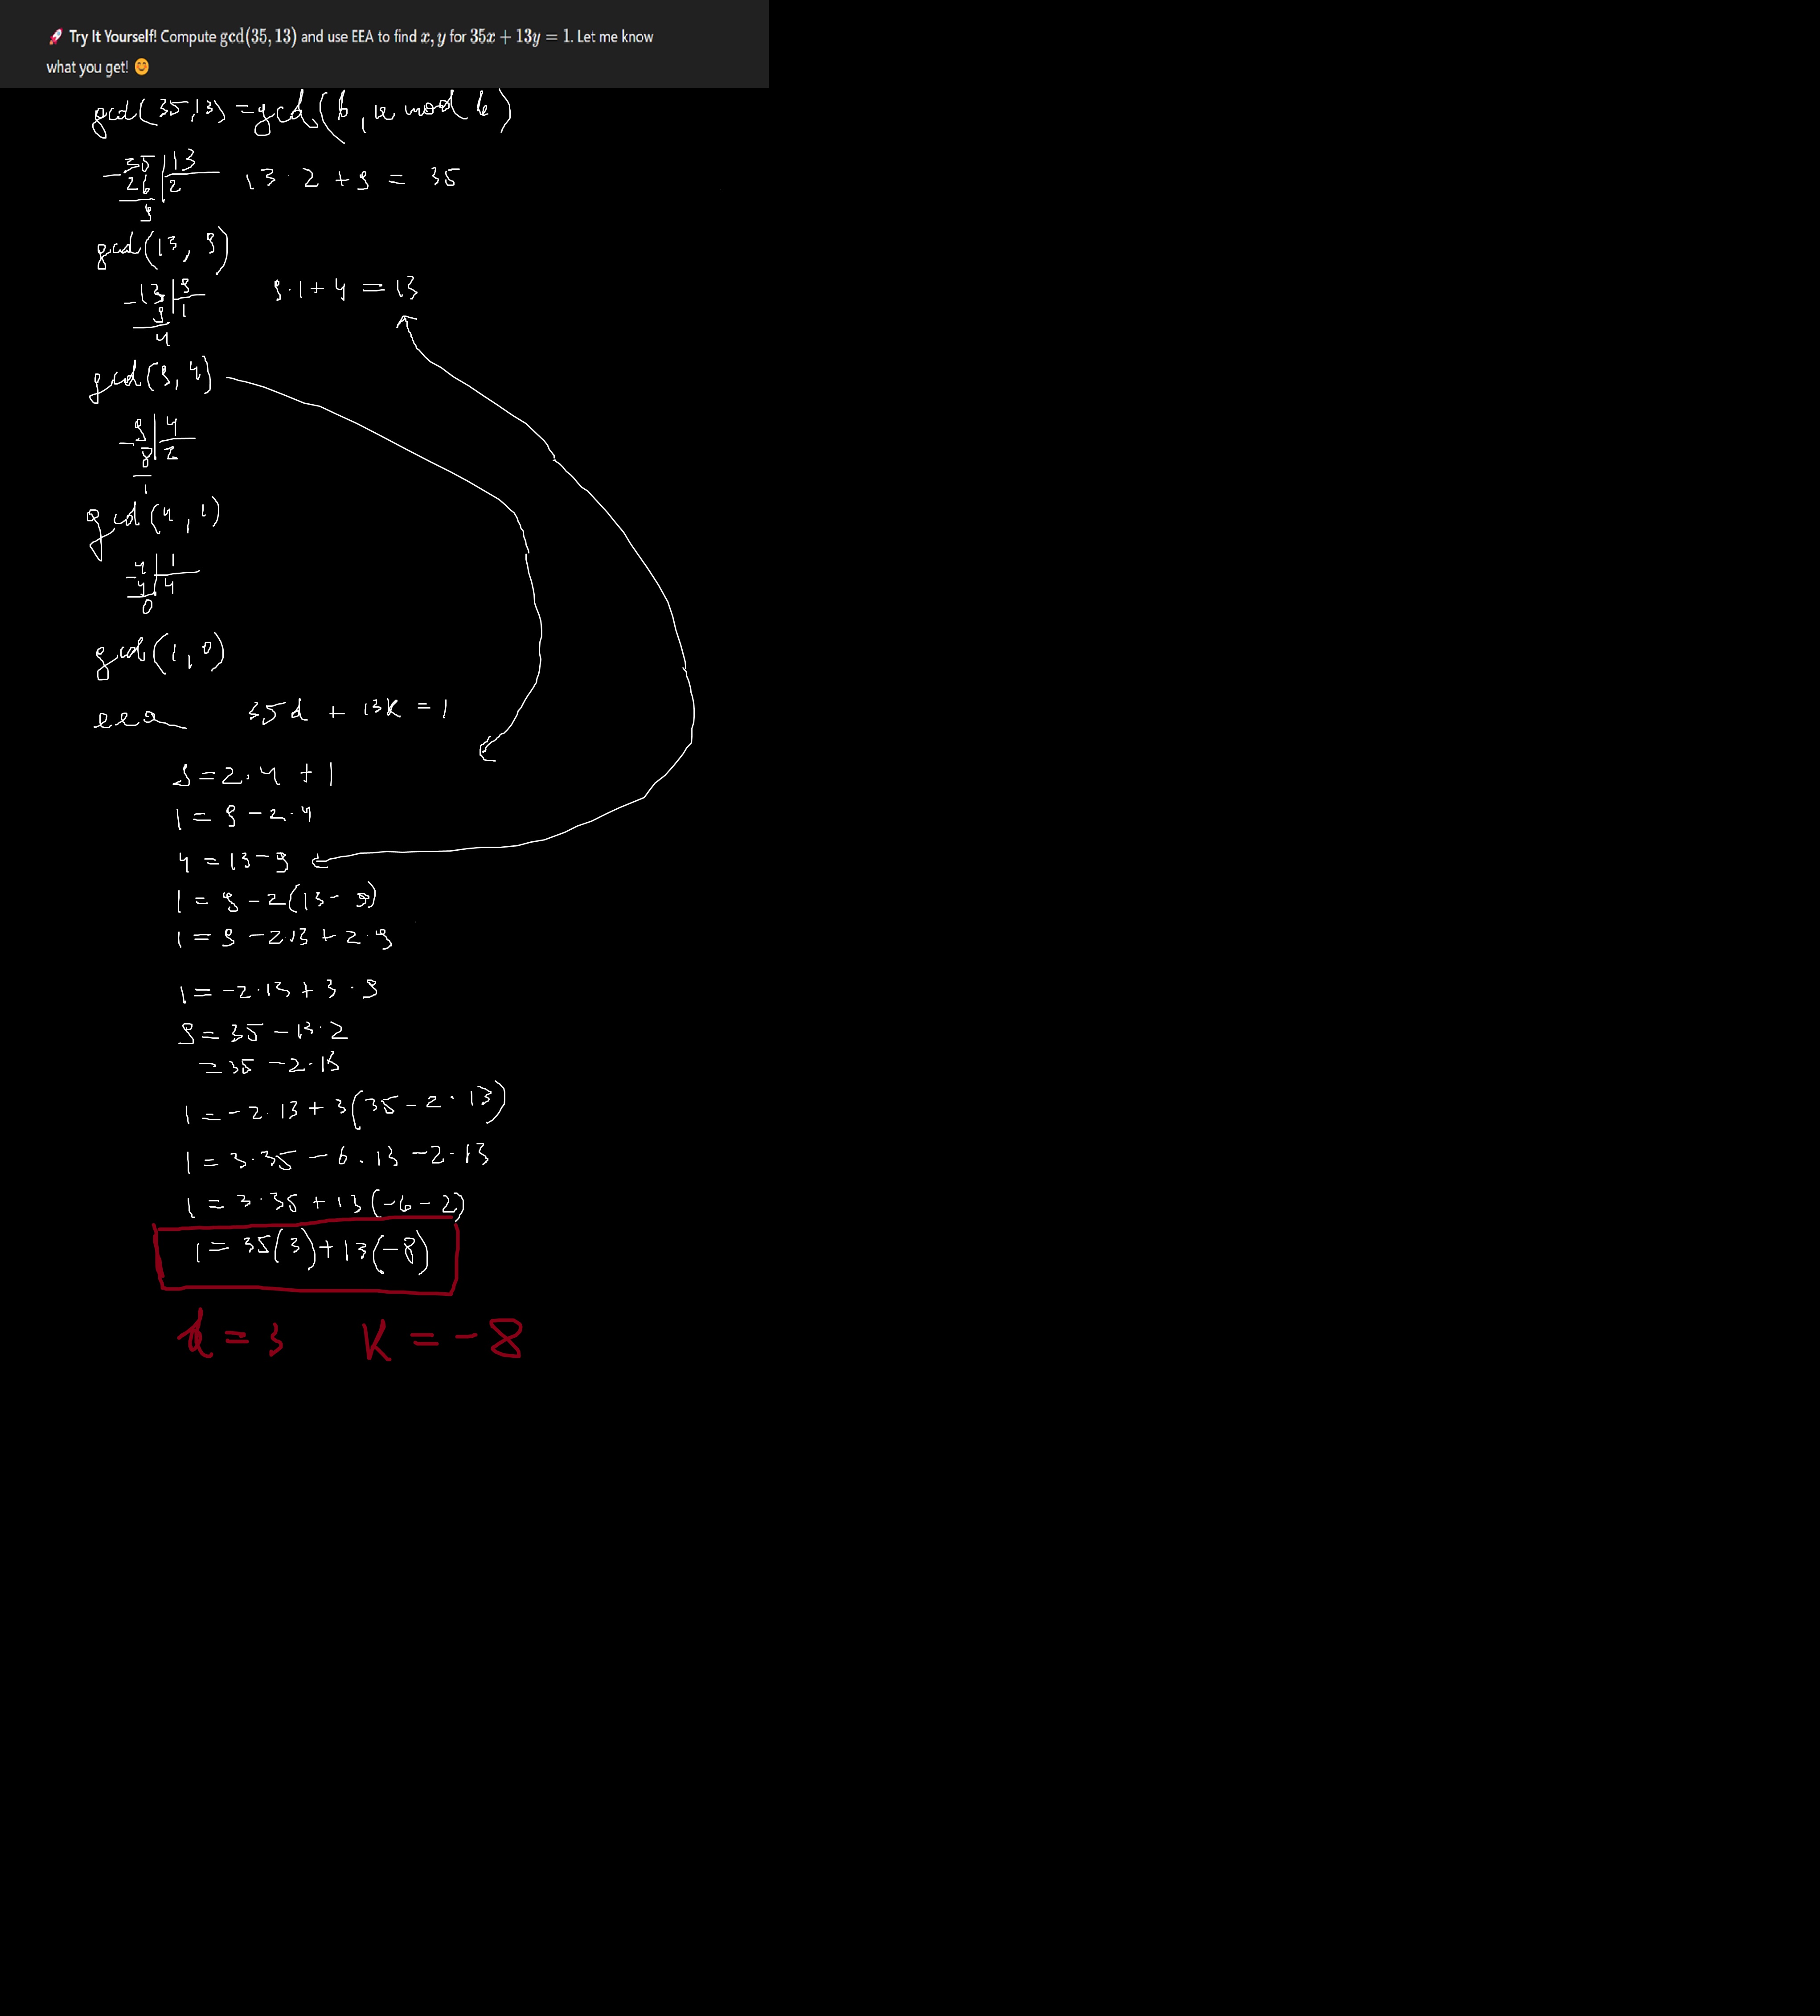 🚀 Try It Yourself! Compute gcd(35, 13) and use EEA to find x, y for 35x + 13y = 1. Let me know
what you get! 😊
gcd(35,13) = gcd(b, a mod b)
-35|13
26|2
9
13·2+9 = 35
gcd(13, 9)
-13|9
9|1
4
9·1+4 = 13
gcd(9, 4)
-9|4
8|2
1
gcd(4, 1)
-4|1
4|4
0
gcd(1, 0)
eea 35d + 13k = 1
9 = 2·4 + 1
1 = 9 - 2·4
4 = 13 - 9
1 = 9 - 2(13 - 9)
1 = 9 - 2·13 + 2·9
1 = -2·13 + 3·9
9 = 35 - 13·2
= 35 - 2·13
1 = -2·13 + 3(35 - 2·13)
1 = 3·35 - 6·13 - 2·13
1 = 3·35 + 13(-6-2)
1 = 35(3) + 13(-8)
d = 3 k = -8